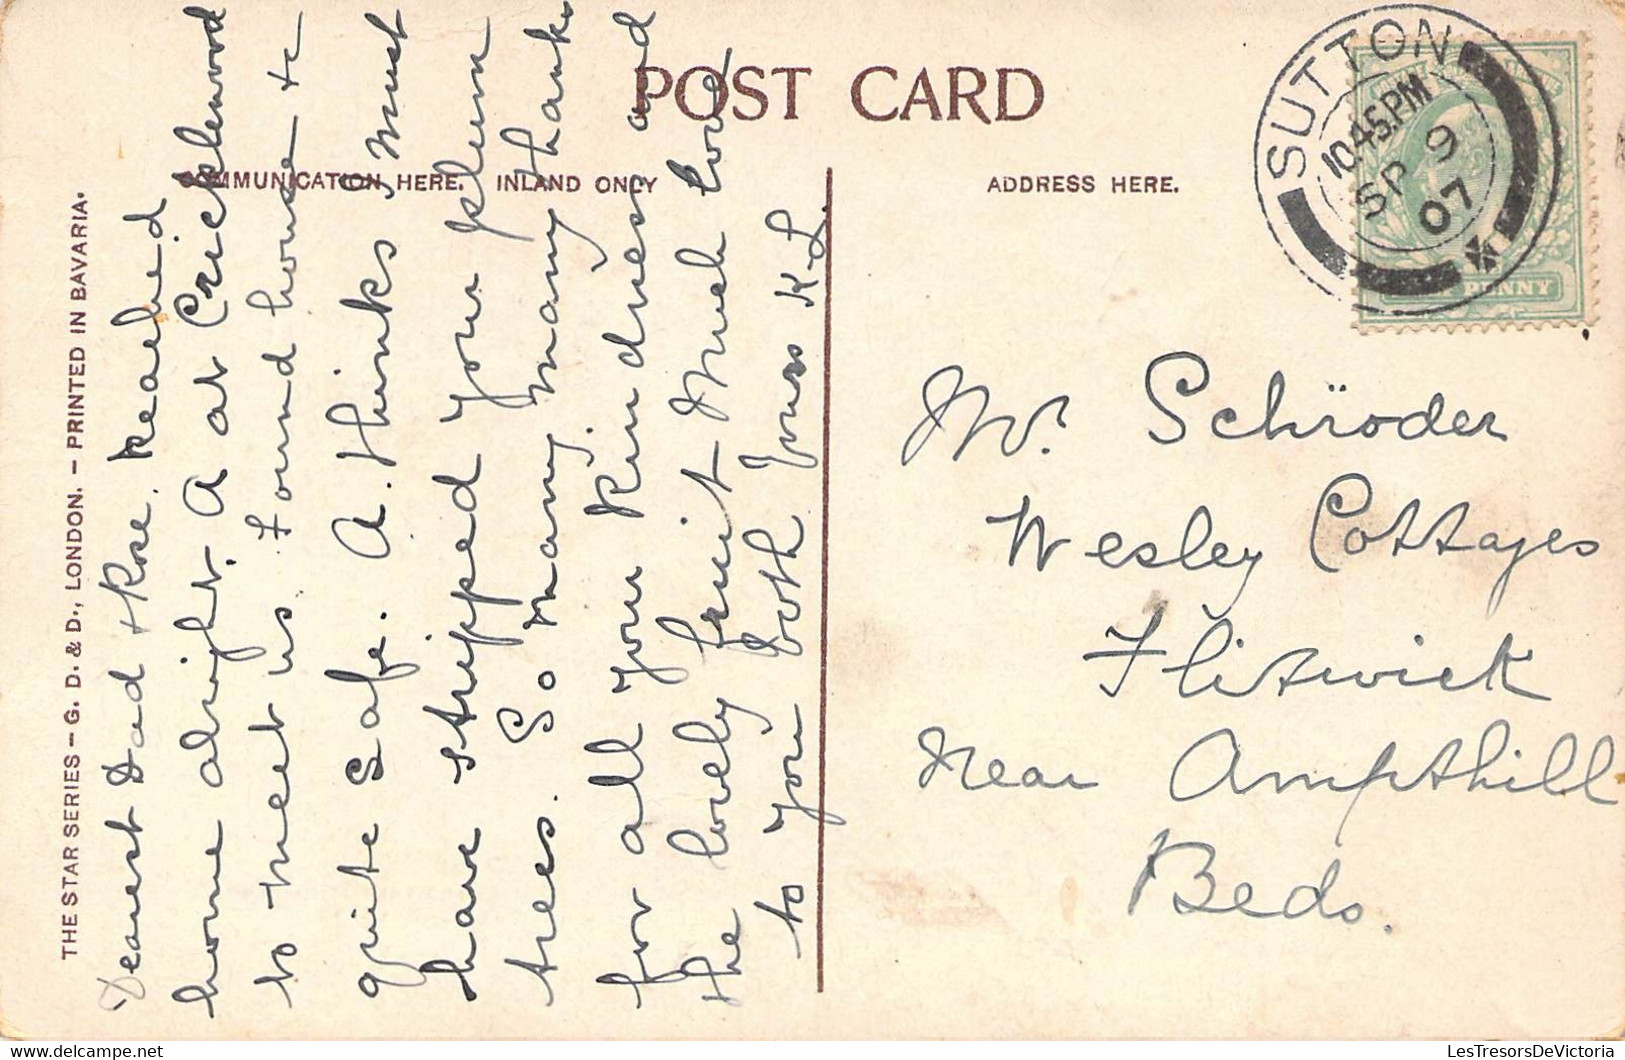 POST CARD
COMMUNICATION HERE. INLAND ONLY
ADDRESS HERE.
THE STAR SERIES – G. D. & D., LONDON. – PRINTED IN BAVARIA.
Dearest Dad & Rose. Reached
home alright. A at Cricklewood
to meet us. Found house &c
quite safe. A. thinks I must
have stripped your plum
trees. So many many many thanks
for all your kindness and
the lovely fruit Much love
to you both Yours K L.
SUTTON
10.45 PM
SP 9
07
HALF PENNY
Mr. Schröder
Wesley Cottages
Flitwick
Near Ampthill
Beds.
LesTresorsDeVictoria
delcampe.net